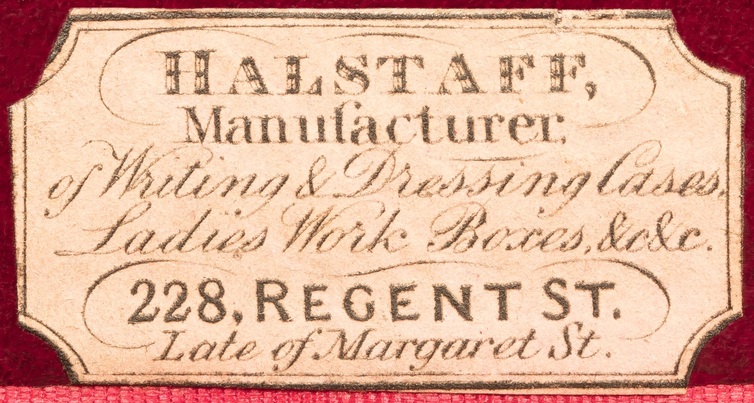 HALSTAFF,
Manufacturer,
of Writing & Dressing Cases,
Ladies Work Boxes, &c &c.
228, REGENT ST.
Late of Margaret St.